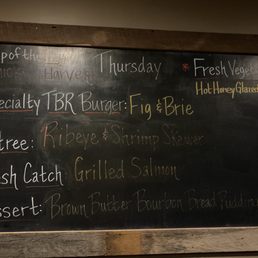 p of the
Harvest
Thursday
* Fresh Veget
Hot Honey Glazed
ecialty TBR Burger: Fig & Brie
tree: Ribeye & Shrimp Skewer
sh Catch Grilled Salmon
ssert: Brown Butter Bourbon Bread Pudding